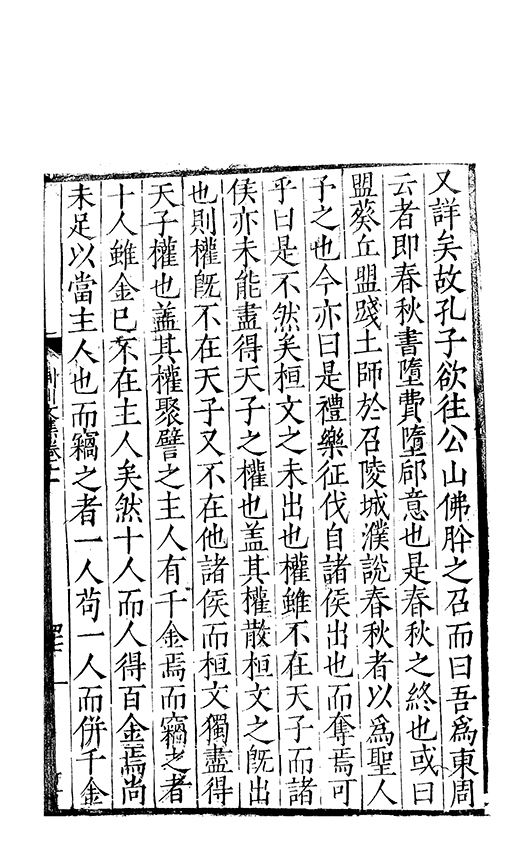 又詳矣故孔子欲往公山佛肸之召而曰吾爲東周
云者即春秋書墮費墮郈意也是春秋之終也或曰
盟葵丘盟踐土師於召陵城濮說春秋者以爲聖人
予之也今亦曰是禮樂征伐自諸侯出也而奪焉可
乎曰是不然矣桓文之未出也權雖不在天子而諸
侯亦未能盡得天子之權也盖其權散桓文之旣出
也則權旣不在天子又不在他諸侯而桓文獨盡得
天子權也盖其權聚譬之主人有千金焉而竊之者
十人雖金已不在主人矣然十人而人得百金焉尚
未足以當主人也而竊之者一人苟一人而併千金